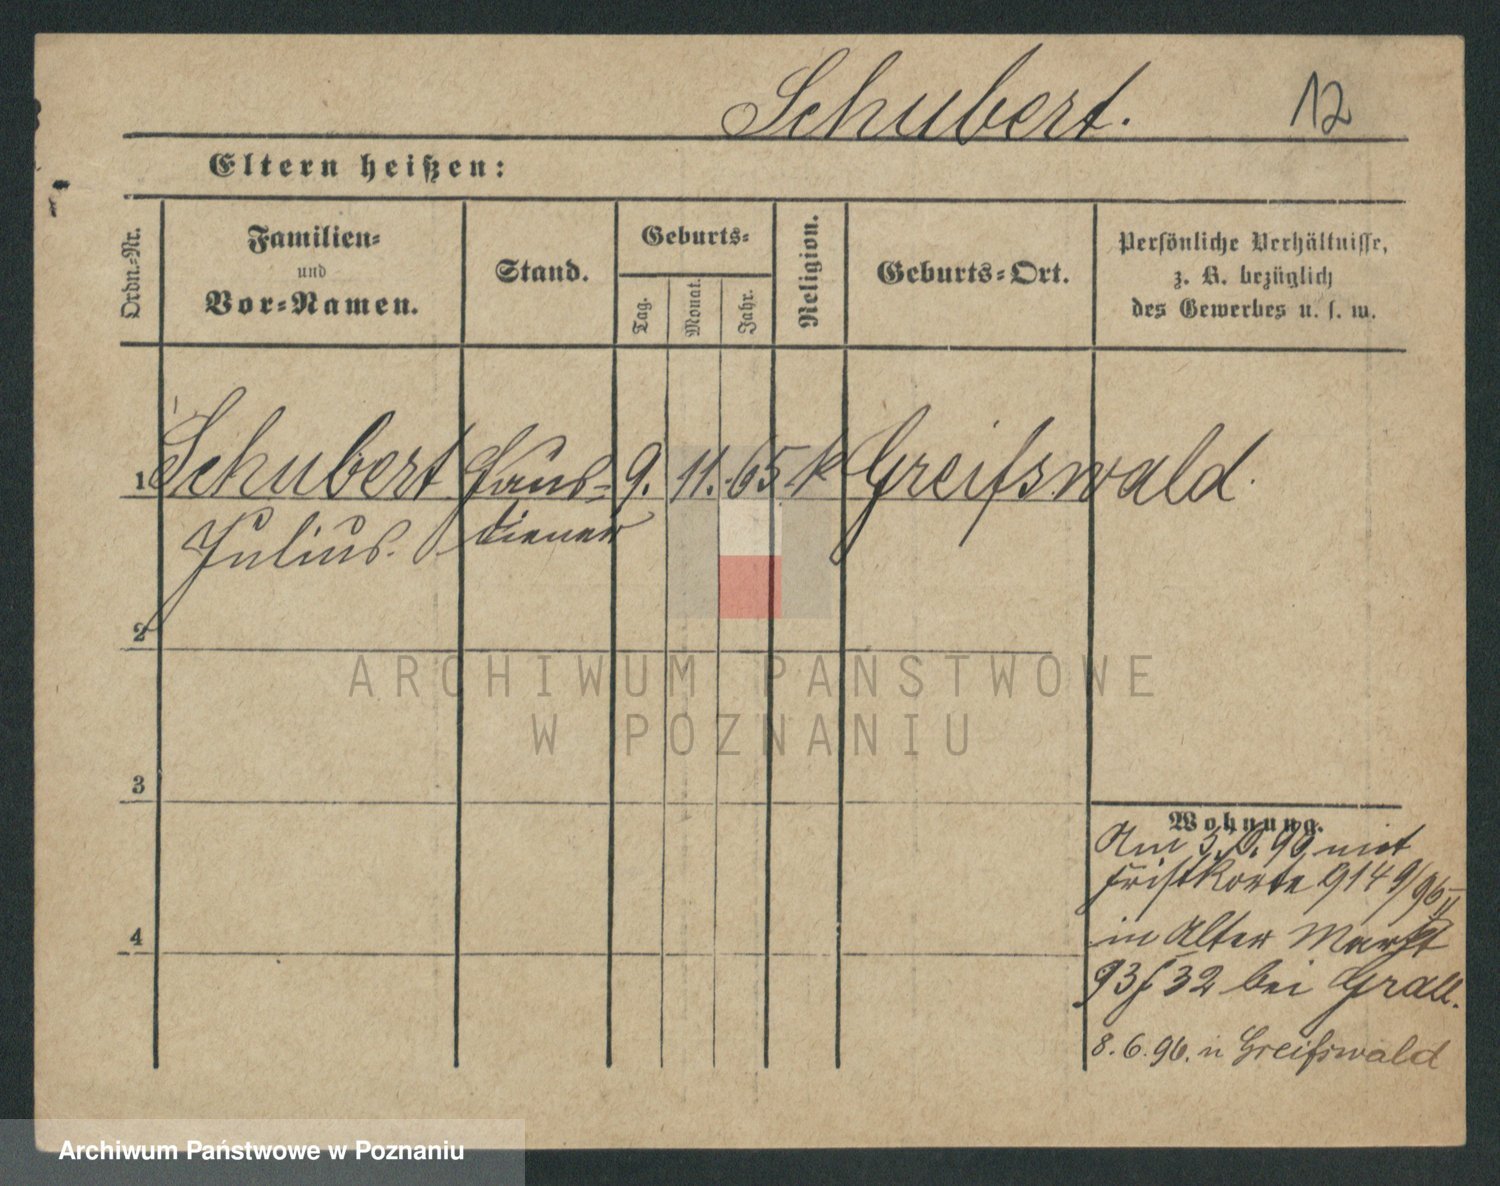 Schubert. 12
Eltern heißen:
Ordn.=Nr.
Familien=
und
Vor=Namen.
Stand.
Geburts=
Tag.
Monat.
Jahr.
Religion.
Geburts=Ort.
Persönliche Verhältnisse,
z. B. bezüglich
des Gewerbes u. s. w.
1 Schubert Haus= 9. 11. 65 k Greifswald.
Julius. diener
2
3
4
Wohnung.
Am 3. 6. 96 mit
Fristkarte 9149/96 II
in Alter Markt
93/ 32 bei Grall.
8. 6. 96. n Greifswald
ARCHIWUM PAŃSTWOWE
W POZNANIU
Archiwum Państwowe w Poznaniu